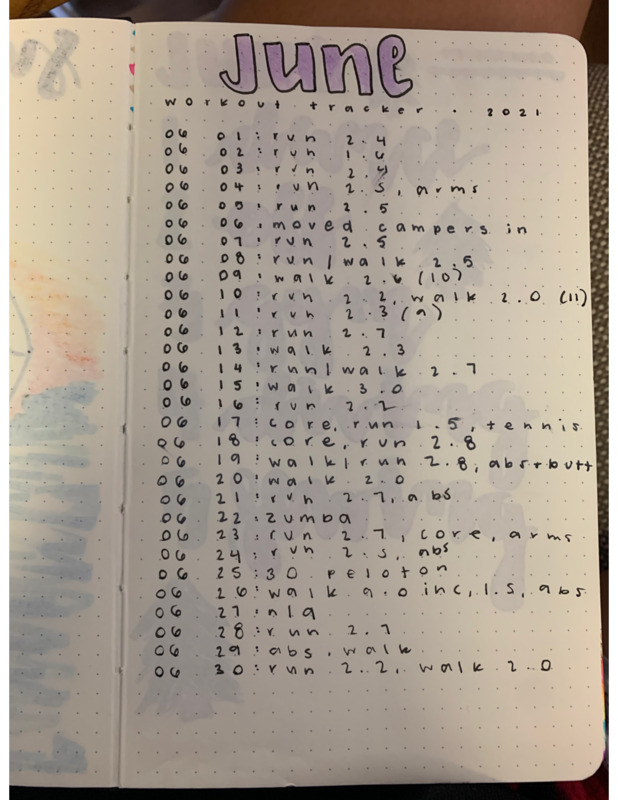 June
workout tracker . 2021
06 01: run 2.4
06 02: run 1.6
06 03: run 2.4
06 04: run 2.5, arms
06 05: run 2.5
06 06: moved campers in
06 07: run 2.5
06 08: run/walk 2.5
06 09: walk 2.6 (10)
06 10: run 2.2, walk 2.0 (11)
06 11: run 2.3 (9)
06 12: run 2.7
06 13: walk 2.3
06 14: run/walk 2.7
06 15: walk 3.0
06 16: run 2.2
06 17: core, run 1.5, tennis
06 18: core, run 2.8
06 19: walk/run 2.8, abs + butt
06 20: walk 2.0
06 21: run 2.7, abs
06 22: zumba
06 23: run 2.7, core, arms
06 24: run 2.5, abs
06 25: 30 peloton
06 26: walk 9.0 inc, 1.5, abs
06 27: n/a
06 28: run 2.7
06 29: abs, walk
06 30: run 2.2, walk 2.0